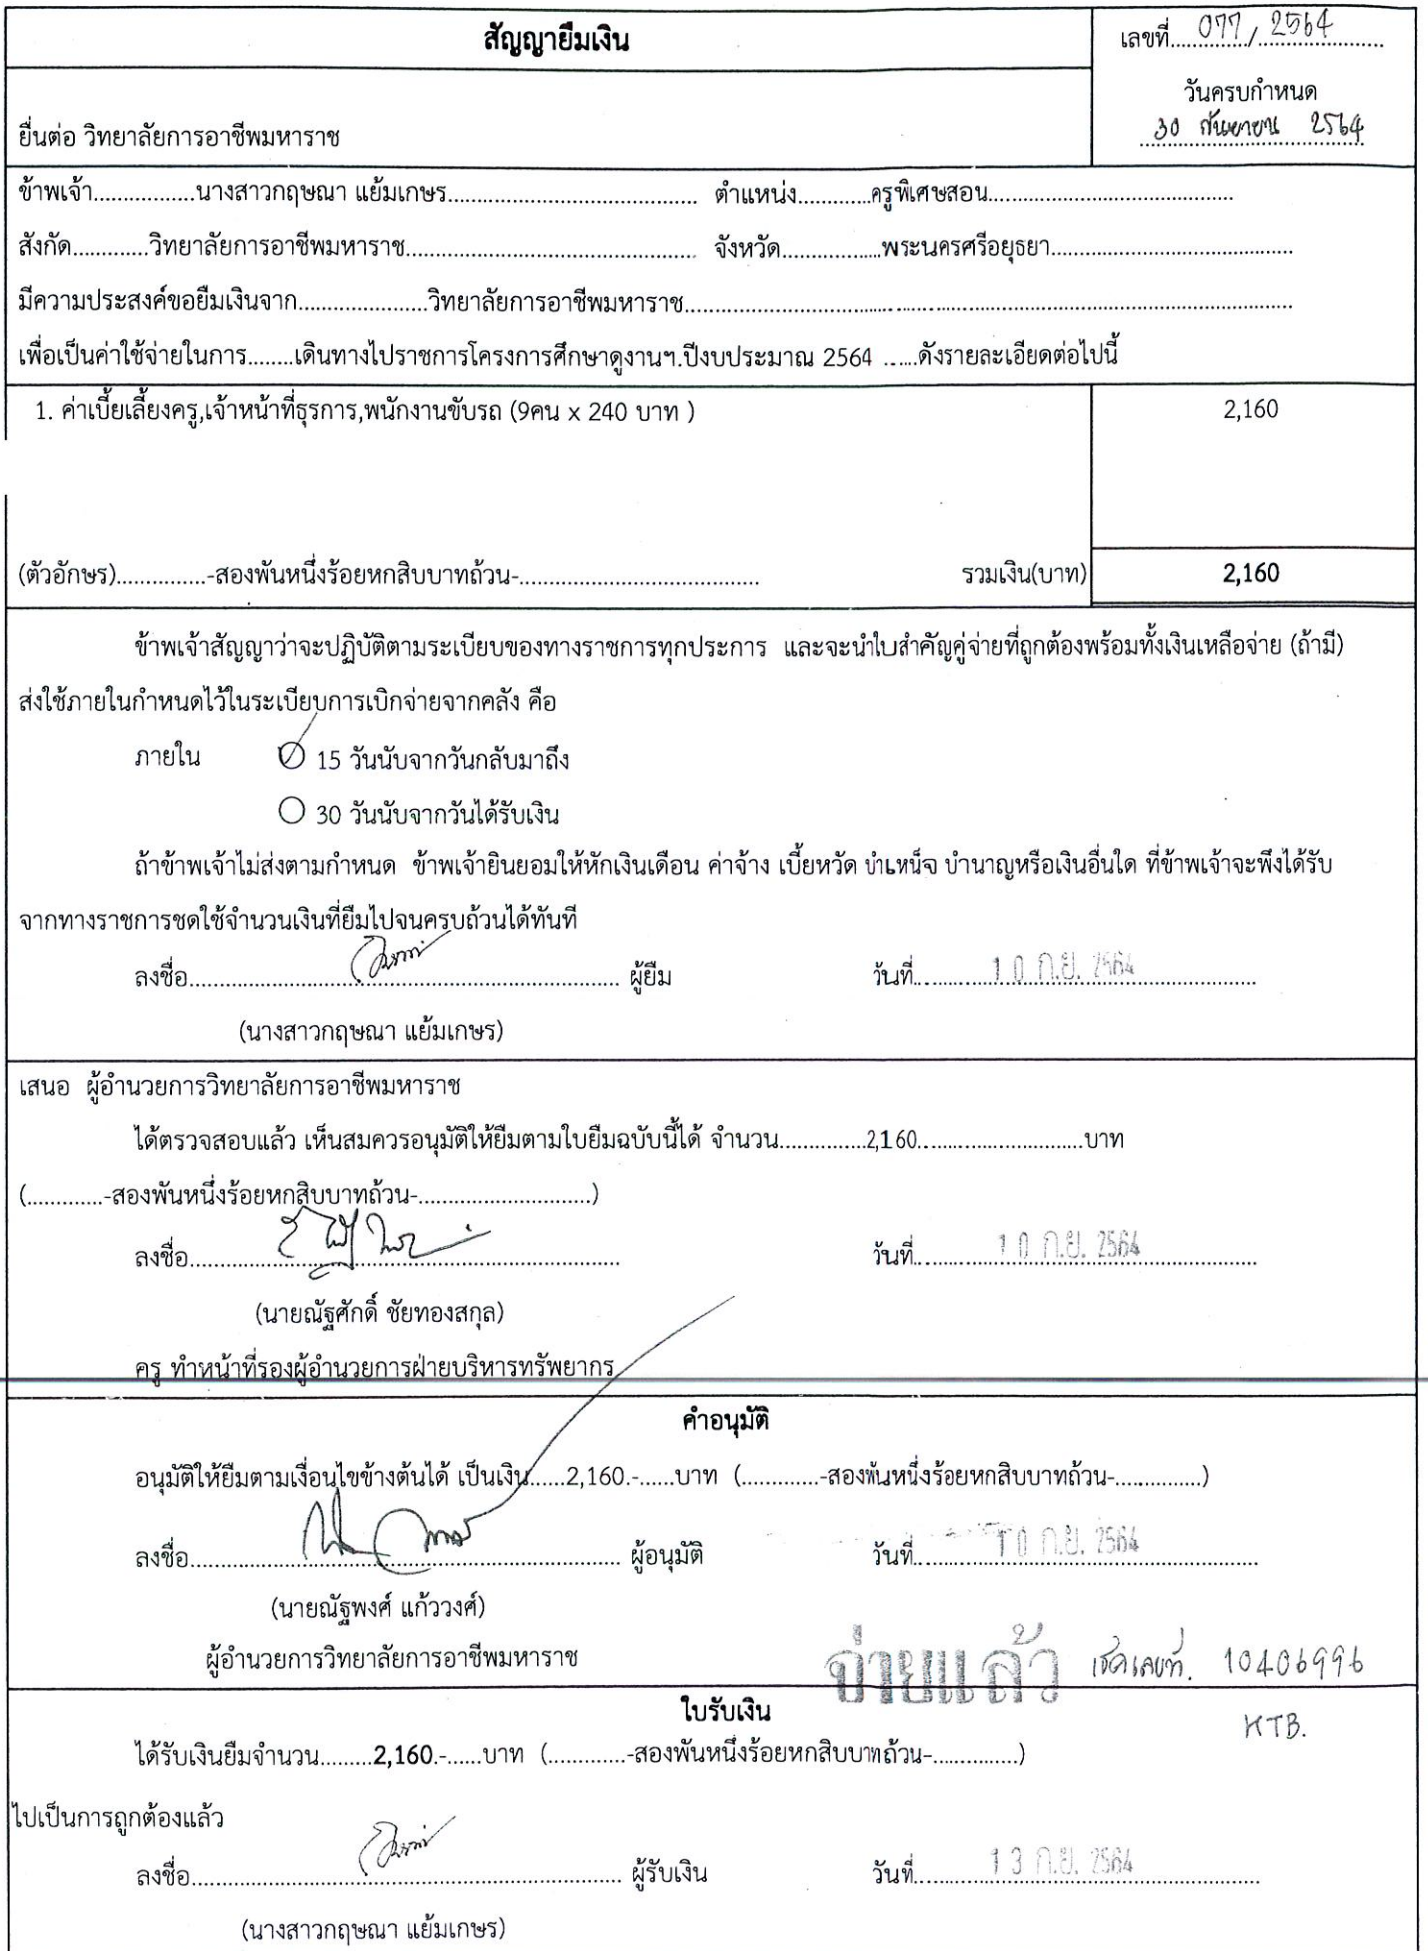 สัญญายืมเงิน
เลขที่....077/2564....
วันครบกำหนด
30 กันยายน 2564
ยื่นต่อ วิทยาลัยการอาชีพมหาราช
ข้าพเจ้า.................นางสาวกฤษณา แย้มเกษร.......................................... ตำแหน่ง............ครูพิเศษสอน.........................................
สังกัด.............วิทยาลัยการอาชีพมหาราช................................................. จังหวัด.................พระนครศรีอยุธยา.........................................
มีความประสงค์ขอยืมเงินจาก......................วิทยาลัยการอาชีพมหาราช.......................................................................................
เพื่อเป็นค่าใช้จ่ายในการ........เดินทางไปราชการโครงการศึกษาดูงานฯ.ปีงบประมาณ 2564 ......ดังรายละเอียดต่อไปนี้
1. ค่าเบี้ยเลี้ยงครู,เจ้าหน้าที่ธุรการ,พนักงานขับรถ (9คน x 240 บาท ) 2,160
(ตัวอักษร)...............-สองพันหนึ่งร้อยหกสิบบาทถ้วน-......................................... รวมเงิน(บาท) 2,160
ข้าพเจ้าสัญญาว่าจะปฏิบัติตามระเบียบของทางราชการทุกประการ และจะนำใบสำคัญคู่จ่ายที่ถูกต้องพร้อมทั้งเงินเหลือจ่าย (ถ้ามี)
ส่งใช้ภายในกำหนดไว้ในระเบียบการเบิกจ่ายจากคลัง คือ
ภายใน 15 วันนับจากวันกลับมาถึง
30 วันนับจากวันได้รับเงิน
ถ้าข้าพเจ้าไม่ส่งตามกำหนด ข้าพเจ้ายินยอมให้หักเงินเดือน ค่าจ้าง เบี้ยหวัด บำเหน็จ บำนาญหรือเงินอื่นใด ที่ข้าพเจ้าจะพึงได้รับ
จากทางราชการชดใช้จำนวนเงินที่ยืมไปจนครบถ้วนได้ทันที
ลงชื่อ.......................................................................... ผู้ยืม วันที่............10 ก.ย. 2564....................
(นางสาวกฤษณา แย้มเกษร)
เสนอ ผู้อำนวยการวิทยาลัยการอาชีพมหาราช
ได้ตรวจสอบแล้ว เห็นสมควรอนุมัติให้ยืมตามใบยืมฉบับนี้ได้ จำนวน...............2,160............................บาท
(.............-สองพันหนึ่งร้อยหกสิบบาทถ้วน-.............................)
ลงชื่อ.......................................................................... วันที่............10 ก.ย. 2564....................
(นายณัฐศักดิ์ ชัยทองสกุล)
ครู ทำหน้าที่รองผู้อำนวยการฝ่ายบริหารทรัพยากร
คำอนุมัติ
อนุมัติให้ยืมตามเงื่อนไขข้างต้นได้ เป็นเงิน......2,160.-......บาท (.............-สองพันหนึ่งร้อยหกสิบบาทถ้วน-..............)
ลงชื่อ.......................................................................... ผู้อนุมัติ วันที่............10 ก.ย. 2564....................
(นายณัฐพงศ์ แก้ววงศ์)
ผู้อำนวยการวิทยาลัยการอาชีพมหาราช จ่ายแล้ว เช็คเลขที่. 10406996
ใบรับเงิน KTB.
ได้รับเงินยืมจำนวน.........2,160.-......บาท (.............-สองพันหนึ่งร้อยหกสิบบาทถ้วน-..............)
ไปเป็นการถูกต้องแล้ว
ลงชื่อ.......................................................................... ผู้รับเงิน วันที่............13 ก.ย. 2564....................
(นางสาวกฤษณา แย้มเกษร)